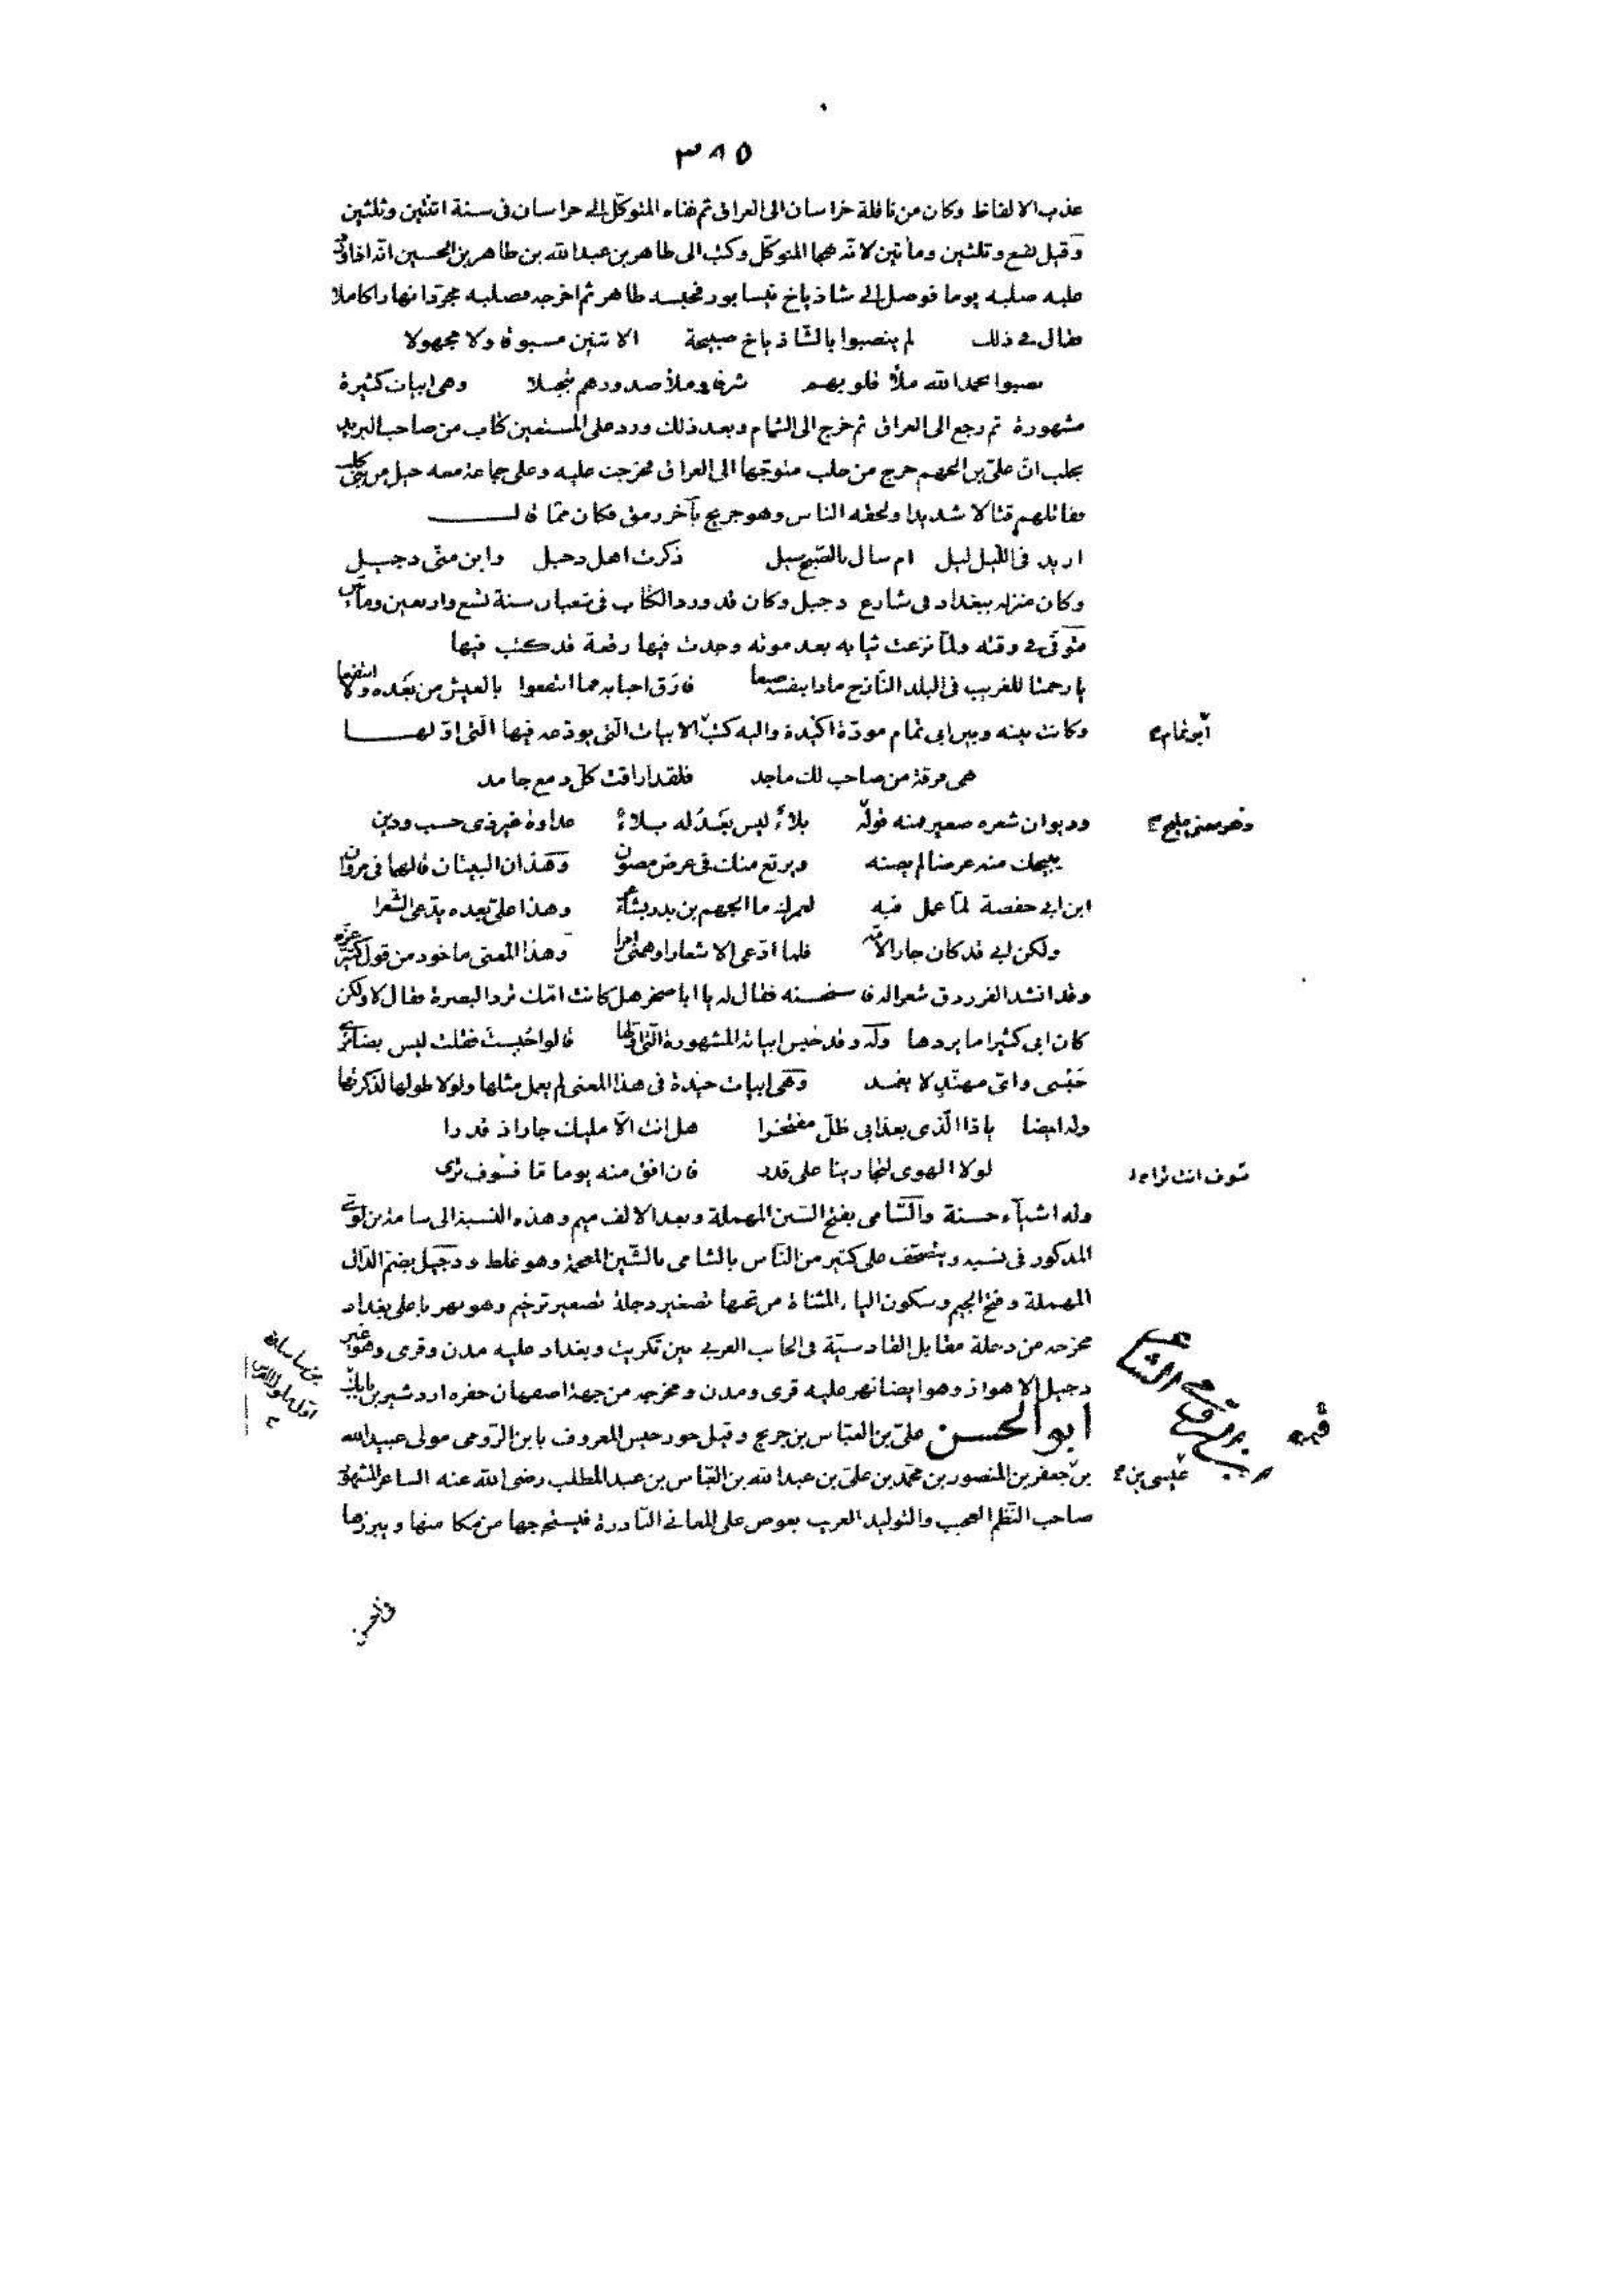 ٣٨٥
عذب الالفاظ وكان من ناقلة خراسان الى العراق ثم نفاه المتوكّل الى خراسان فى سنة اثنتين وثلثين
وقيل تسع وثلثين ومأتين لانّه هجا المتوكّل وكتب الى طاهر بن عبدالله بن طاهر بن الحسين انّه اذا ورد
عليه صلبه يوما فوصل الى شاذياخ نيسابور فحبسه طاهر ثم اخرجه فصلبه مجرّدا نهارا كاملا
فقال فى ذلك لم ينصبوا بالشّاذياخ صبيحة الاثنين مسبوقا ولا مجهولا
نصبوا بحمد الله ملأ قلوبهم شرفا وملأ صدورهم تبجيلا وهى ابيات كثيرة
مشهورة ثم رجع الى العراق ثم خرج الى الشام وبعد ذلك ورد على المستعين كتاب من صاحب البريد
بحلب انّ علىّ بن الجهم خرج من حلب متوجّها الى العراق فخرجت عليه وعلى جماعة معه خيل من بنى كلب
فقاتلهم قتالا شديدا ولحقه الناس وهو جريح بآخر رمق فكان ممّا قال
اريد فى اللّيل ليل ام سال بالصّبح سيل ذكرت اهل دجيل واين منّى دجيل
وكان منزله ببغداد فى شارع دجيل وكان قد ورد الكتاب فى شعبان سنة تسع واربعين ومأتين
فتوفّى فى وقته ولمّا نزعت ثيابه بعد موته وجدت فيها رقعة قد كتب فيها
يا رحمتا للغريب فى البلد النّازح ماذا بنفسه صنعا فارق احبابه فما انتفعوا بالعيش من بعده ولا انتفعا
وكانت بينه وبين ابى تمام مودّة اكيدة واليه كتب الابيات التى يودّعه فيها الّتى اوّلها
أبو تمام
هى فرقة من صاحب لك ماجد فلقد اراقت كلّ دمع جامد
وديوان شعره صغير فمنه قوله بلاءٌ ليس يَعْدُله بلاءٌ عداوة غير ذى حسب ودين
وهو معنى مليح
يبيحك منه عرضا لم يصنه ويرتع منك فى عرض مصون وهذان البيتان قالهما فى مروان
ابن ابى حفصة لمّا عمل فيه لعمرك ما الجهم بن بدر بشاعر وهذا علىّ بعده يدّعى الشّعرا
ولكن ابى قد كان جارا لأمّه فلما ادّعى الاشعار اوهمنى امرا وهذا المعنى ماخوذ من قول كثيّر عزّه
وقد انشد الفرزدق شعرا له فاستحسنه فقال له يا ابا صخر هل كانت امّك ترد البصرة فقال لا ولكن
كان ابى كثيرا ما يردها وله وقد حبس ابياته المشهورة الّتى اوّلها قالوا حُبِستَ فقلت ليس بضائرى
حَبْسى واىّ مهنّدٍ لا يغمد وهى ابيات جيّدة فى هذا المعنى لم يعمل مثلها ولولا طولها لذكرتها
وله ايضا يا ذا الّذى بعذابى ظلّ مفتخرا هل انت الّا مليك جار اذ قدرا
لولا الهوى لتجارينا على قدر فان افق منه يوما ما فسوف ترى
وله اشيآء حسنة والسّامى بفتح السّين المهملة وبعد الالف ميم وهذه النسبة الى سامة بن لوى
المذكور فى نسبه ويتصحّف على كثير من النّاس بالشامى بالشّين المعجمة وهو غلط ودجيل بضمّ الدّال
المهملة وفتح الجيم وسكون الياء المثناة من تحتها تصغير دجلة تصغير ترخيم وهو نهر باعلى بغداد
مخرجه من دجلة مقابل القادسيّة فى الجانب الغربى بين تكريت وبغداد عليه مدن وقرى وهو غير
دجيل الاهواز وهو ايضا نهر عليه قرى ومدن ومخرجه من جهة اصفهان حفره اردشير بن بابك
بن ساسان اوّل ملوك الفرس
ابو الحسن علىّ بن العبّاس بن جريج وقيل جورجيس المعروف بابن الرّومى مولى عبيدالله
بن جعفر بن المنصور بن محمّد بن علىّ بن عبدالله بن العبّاس بن عبد المطلب رضى الله عنه الشاعر المشهور
عيسى بن
صاحب النّظم العجيب والتوليد الغريب يغوص على المعانى النّادرة فيستخرجها من مكامنها ويبرزها